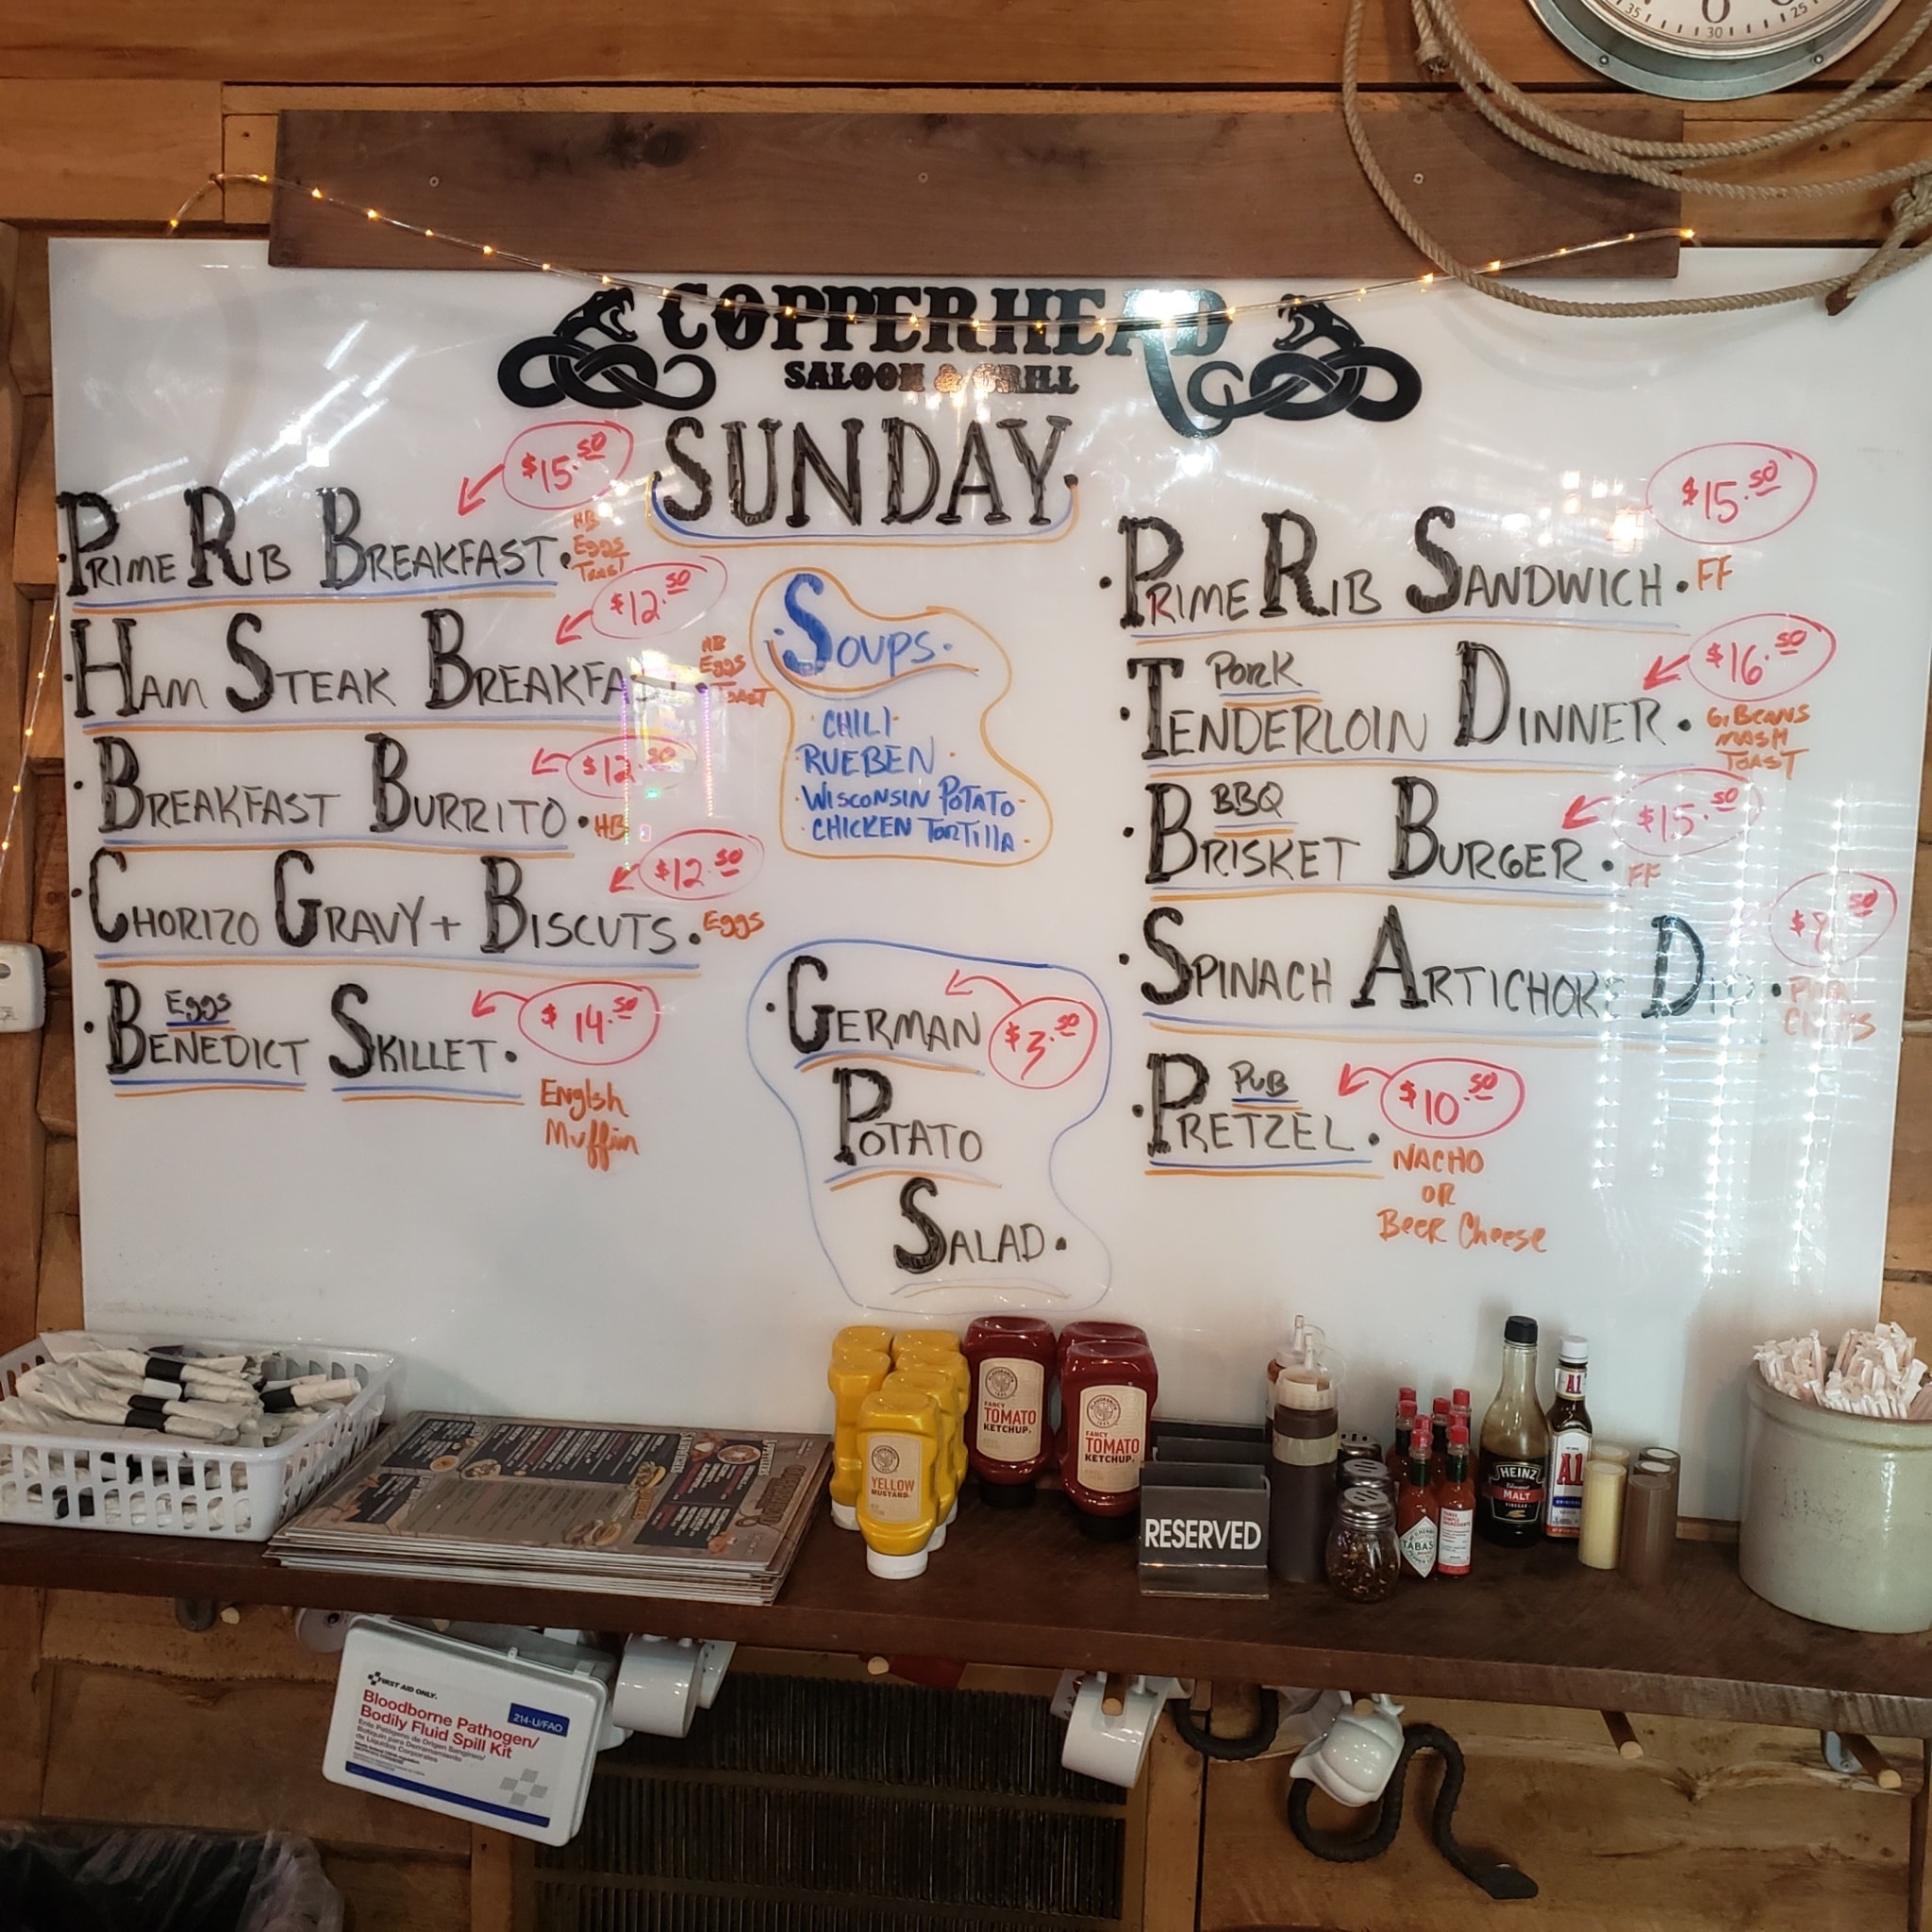 35
30
25
COPPERHEAD
SALOON & GRILL
SUNDAY
$15.50
PRIME RIB BREAKFAST.
HB
Eggs
Toast
$12.50
HAM STEAK BREAKFAST.
HB
Eggs
TOAST
$12.50
BREAKFAST BURRITO.
HB
$12.50
CHORIZO GRAVY + BISCUTS.
Eggs
Eggs
BENEDICT SKILLET.
$14.50
Englsh
Muffin
SOUPS.
CHILI
RUEBEN
WISCONSIN POTATO
CHICKEN TORTILLA
GERMAN
$3.50
POTATO
SALAD.
$15.50
PRIME RIB SANDWICH.
FF
$16.50
PORK
TENDERLOIN DINNER.
G. BEANS
MASH
TOAST
$15.50
BBQ
BRISKET BURGER.
FF
SPINACH ARTICHOKE DIP.
PITA
CHIPS
PUB
PRETZEL.
$10.50
NACHO
OR
Beer Cheese
YELLOW
MUSTARD
FANCY
TOMATO
KETCHUP
FANCY
TOMATO
KETCHUP
RESERVED
TABASCO
HEINZ
MALT
VINEGAR
A1
A1
FIRST AID ONLY
214-U/FAO
Bloodborne Pathogen/
Bodily Fluid Spill Kit